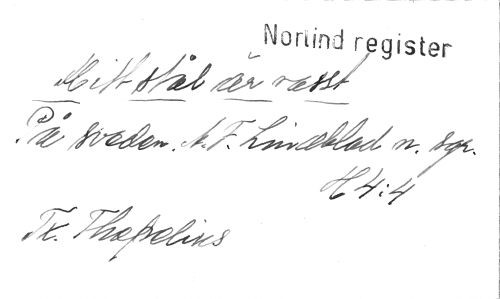 Norlind register
Mitt stål är vasst
På sveden. A. F. Lindblad n. sgr.
H 4:4
Tx. Thopelius